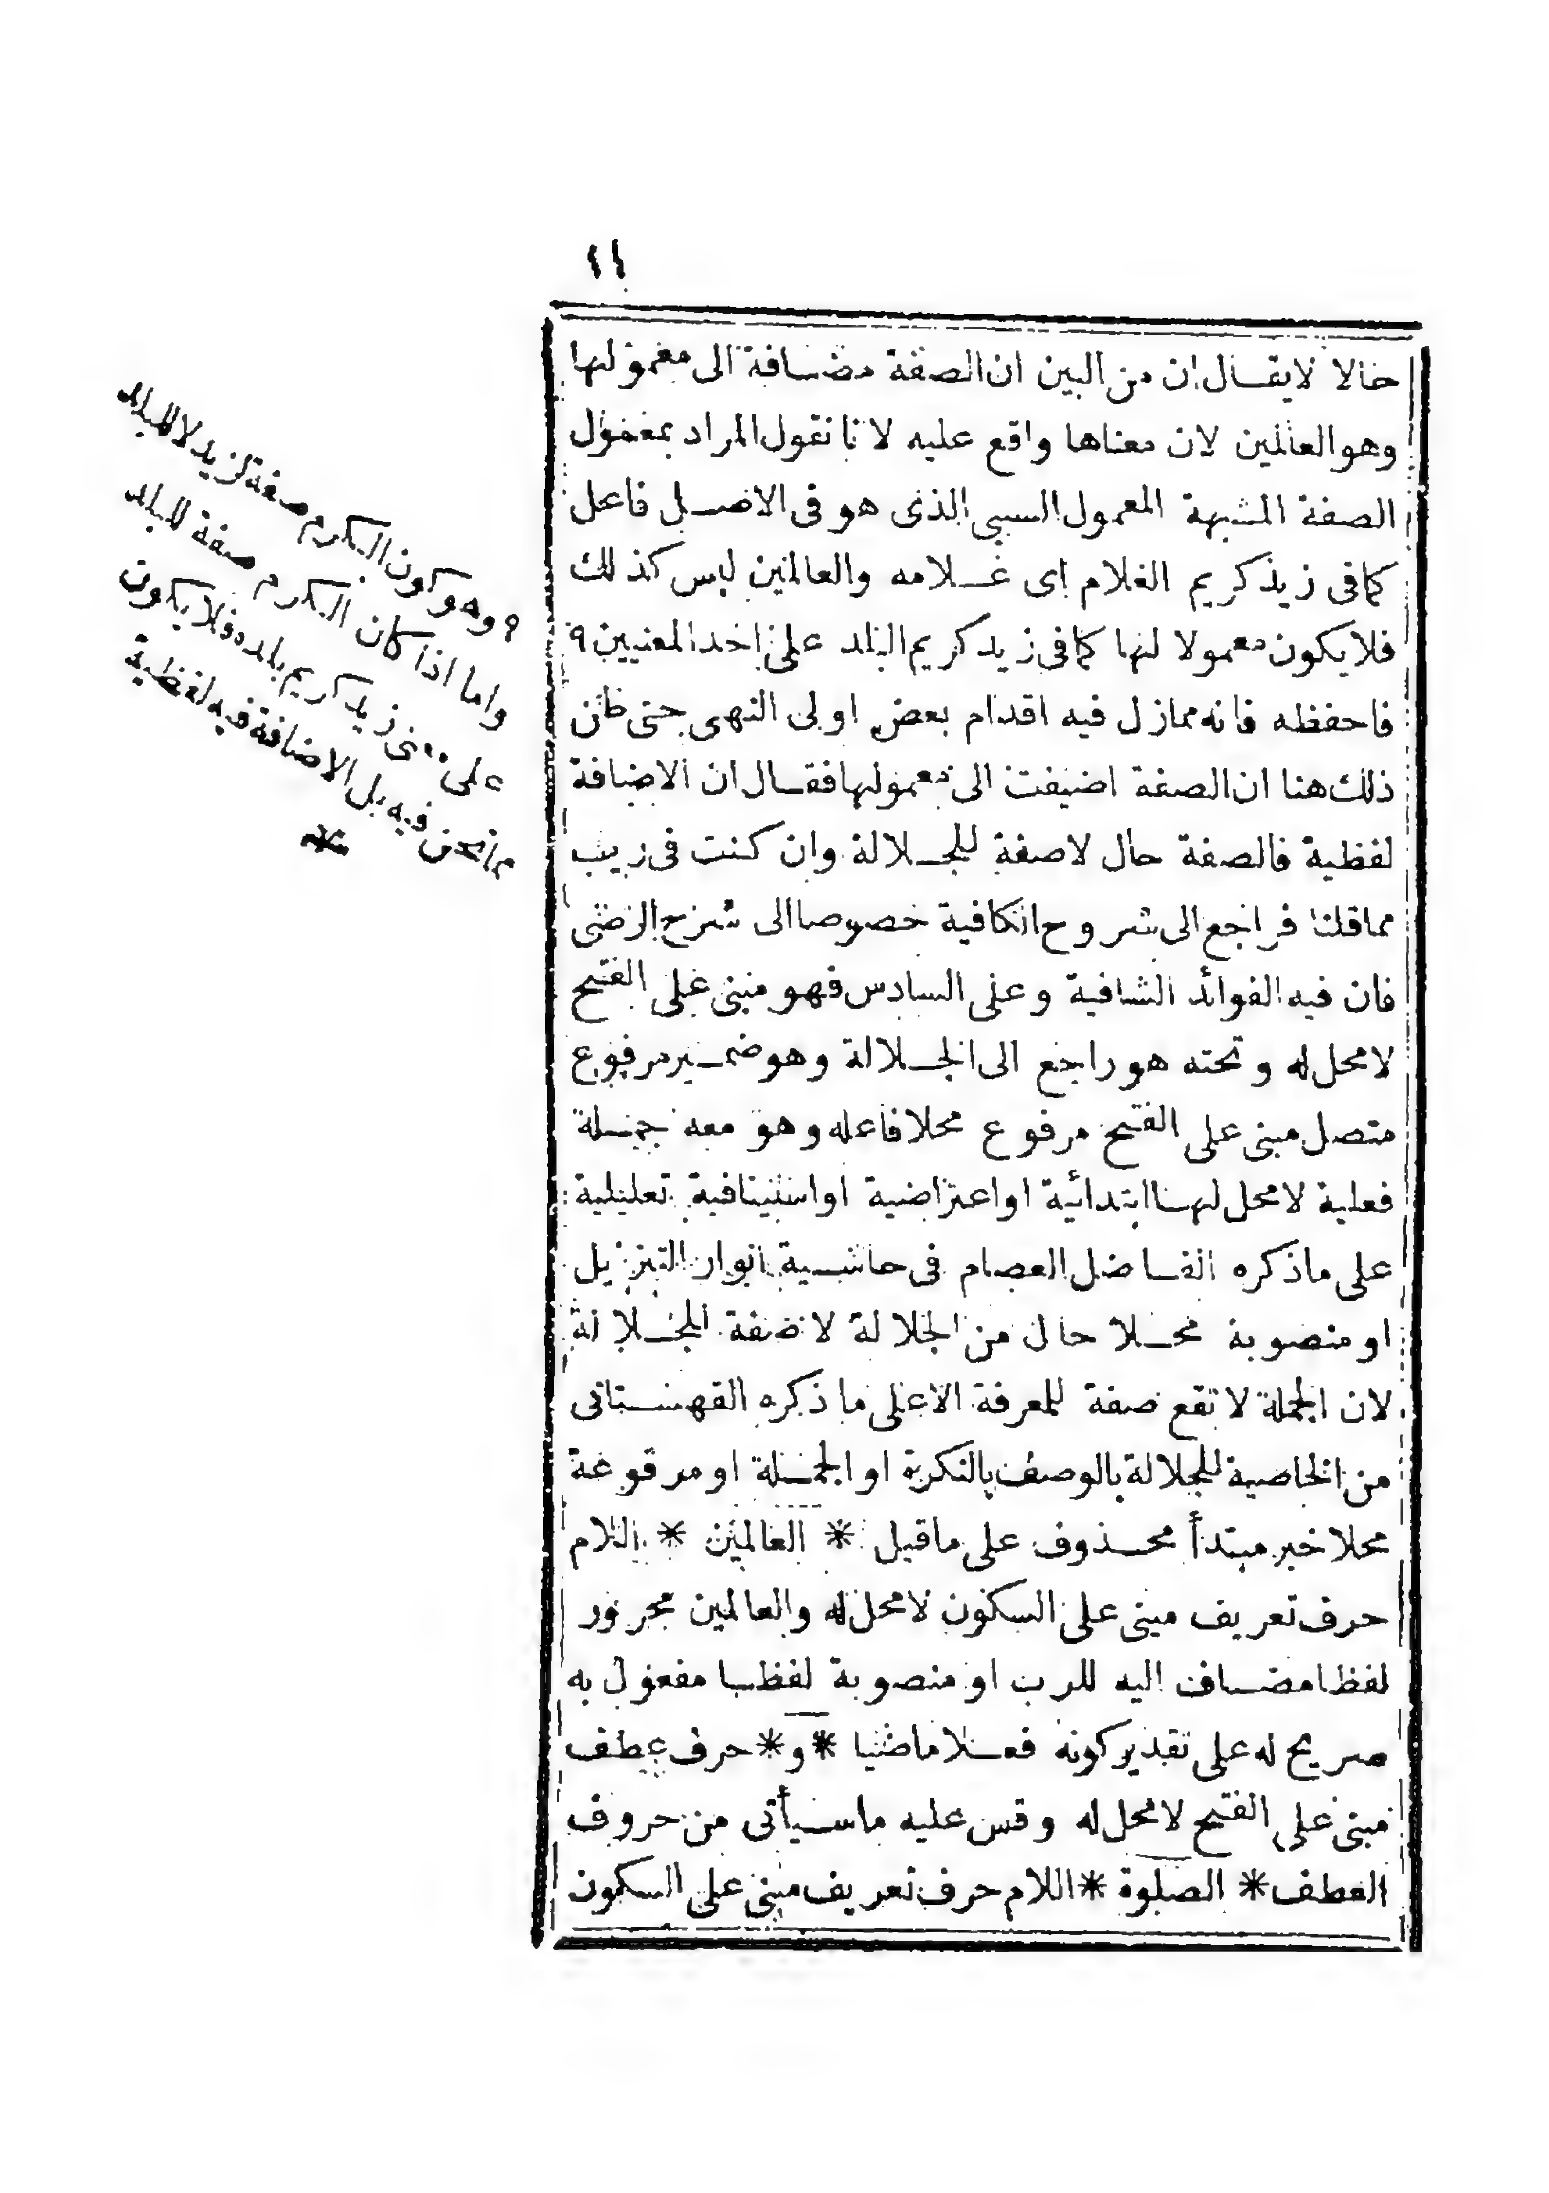 ١١
حالا لا يقال ان من البين ان الصفة مضافة الى معمولها
وهو العالمين لان معناها واقع عليه لانا نقول المراد بمعمول
الصفة المشبهة المعمول السببى الذى هو فى الاصل فاعل
كمافى زيد كريم الغلام اى غلامه والعالمين ليس كذلك
فلا يكون معمولا لها كمافى زيد كريم البلد على احد المعنيين ٩
فاحفظه فانه ممازل فيه اقدام بعض اولى النهى حتى ظن
ذلك هنا ان الصفة اضيفت الى معمولها فقال ان الاضافة
لفظية فالصفة حال لاصفة للجلالة وان كنت فى ريب
مماقلنا فراجع الى شروح الكافية خصوصا الى شرح الرضى
فان فيه الفوائد الشافية وعلى السادس فهو مبنى على الفتح
لامحل له وتحته هو راجع الى الجلالة وهو ضمير مرفوع
متصل مبنى على الفتح مرفوع محلا فاعله وهو معه جملة
فعلية لامحل لها ابتدائية او اعتراضية او استينافية تعليلية
على ماذكره الفاضل العصام فى حاشية انوار التنزيل
او منصوبة محلا حال من الجلالة لا صفة للجلالة
لان الجملة لا تقع صفة للمعرفة الا على ما ذكره القهستانى
من الخاصية للجلالة بالوصف بالنكرة او الجملة او مرفوعة
محلا خبر مبتدأ محذوف على ماقيل * العالمين * اللام
حرف تعريف مبنى على السكون لامحل له والعالمين مجرور
لفظا مضاف اليه للرب او منصوبة لفظا مفعول به
صريح له على تقدير كونه فعلا ماضيا * و * حرف عطف
مبنى على الفتح لامحل له وقس عليه ماسيأتى من حروف
العطف * الصلوة * اللام حرف تعريف مبنى على السكون
٩ وهو كون الكرم صفة لزيد لا للبلد
واما اذا كان الكرم صفة للبلد
على معنى زيد كريم بلده فلا يكون
مما نحن فيه بل الاضافة فيه لفظية